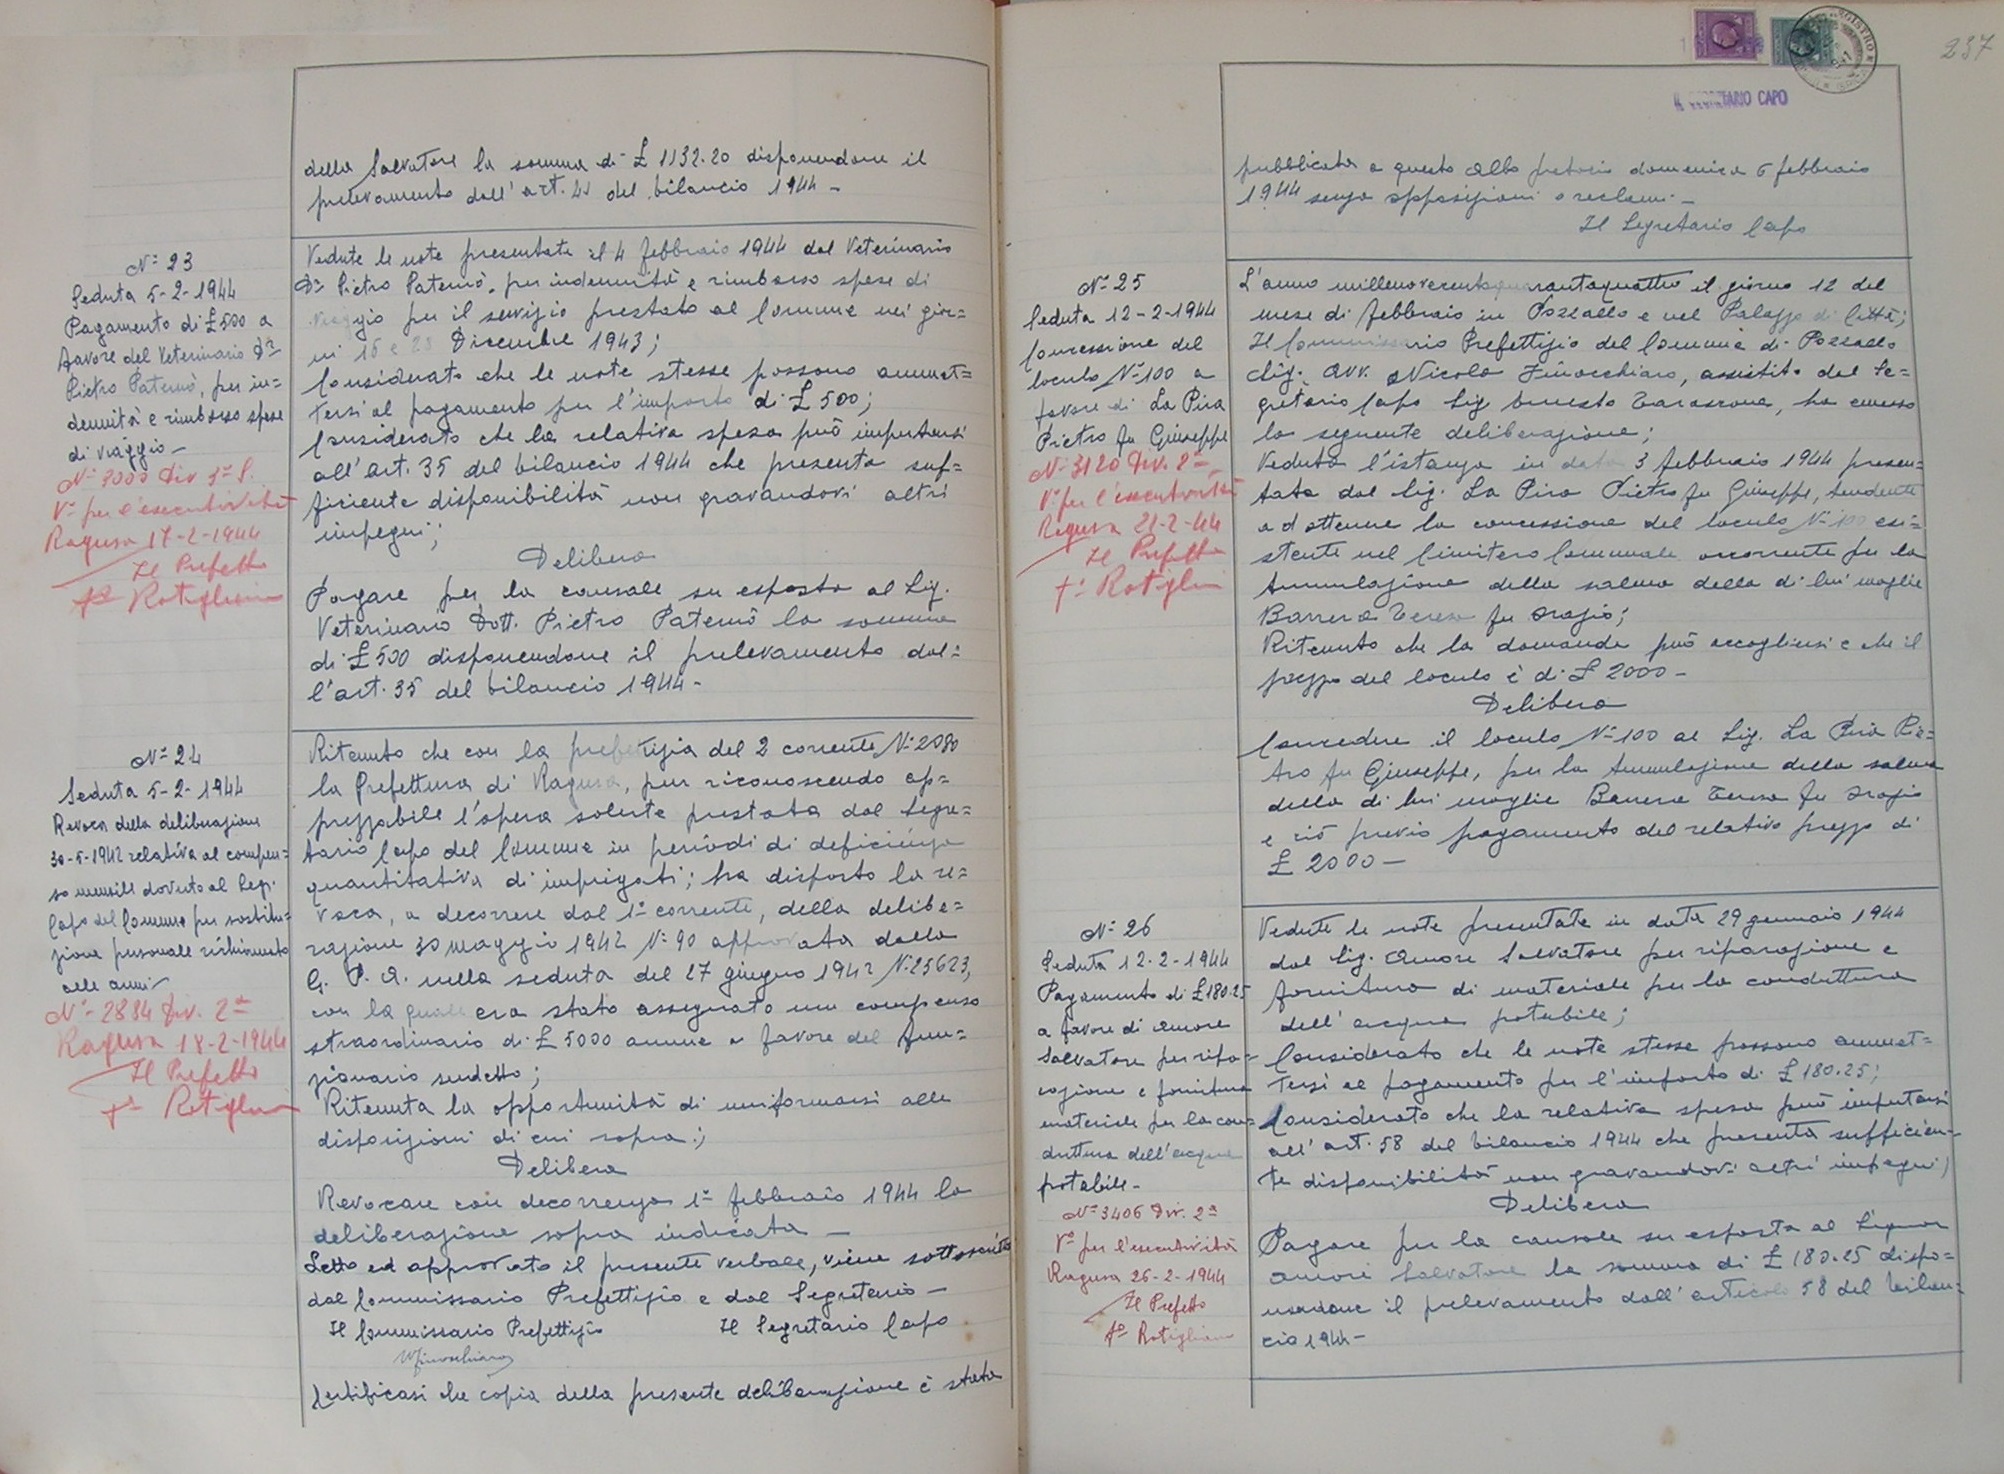 della Salvatore la somma di £ 1132.20 disponendone il
prelevamento dall'art. del bilancio 1944 -
N° 23
Seduta 5-2-1944
Pagamento di £ 500 a
favore del Veterinario Dr
Pietro Paternò, per in=
dennità e rimborso spese
di viaggio -
N° 3000 Div 1ª S.
V° per l'esecutività
Ragusa 17-2-1944
Il Prefetto
fº Rotigliano
Vedute le note presentate il 4 febbraio 1944 dal Veterinario
Dr Pietro Paternò, per indennità e rimborso spese di
viaggio per il servizio prestato al Comune nei gior=
ni 16 e 23 Dicembre 1943;
Considerato che le note stesse possono ammet=
tersi al pagamento per l'importo di £ 500;
Considerato che la relativa spesa può imputarsi
all'art. 35 del bilancio 1944 che presenta suf=
ficiente disponibilità non gravandovi altri
impegni;
Delibera
Pagare per la causale su esposta al Sig.
Veterinario Dott. Pietro Paternò la somma
di £ 500 disponendone il prelevamento dal=
l'art. 35 del bilancio 1944 -
N° 24
Seduta 5-2-1944
Revoca della deliberazione
30-5-1942 relativa al compen=
so mensile dovuto al Seg.
Capo del Comune per sostitu=
zione personale richiamato
alle armi
N° 2884 Div. 2ª
Ragusa 18-2-1944
Il Prefetto
fº Rotigliano
Ritenuto che con la prefettizia del 2 corrente N° 2080
la Prefettura di Ragusa, pur riconoscendo ap=
prezzabile l'opera solerte prestata dal Segre=
tario Capo del Comune in periodi di deficienza
quantitativa di impiegati; ha disposto la re=
voca, a decorrere dal 1° corrente, della delibe=
razione 30 maggio 1942 N° 90 approvata dalla
G. P. A. nella seduta del 27 giugno 1942 N. 25623,
con la quale era stato assegnato un compenso
straordinario di £ 5000 annue a favore del fun=
zionario suddetto;
Ritenuta la opportunità di uniformarsi alle
disposizioni di cui sopra;
Delibera
Revocare con decorrenza 1° febbraio 1944 la
deliberazione sopra indicata -
Letto ed approvato il presente verbale, viene sottoscritto
dal Commissario Prefettizio e dal Segretario -
Il Commissario Prefettizio Il Segretario Capo
NFinocchiaro
Certificasi che copia della presente deliberazione è stata
237
IL SEGRETARIO CAPO
pubblicata a questo Albo pretorio domenica 6 febbraio
1944 senza opposizioni o reclami -
Il Segretario Capo
N° 25
Seduta 12-2-1944
Concessione del
loculo N° 100 a
favore di La Pira
Pietro fu Giuseppe
N° 3120 Div. 2ª
V° per l'esecutività
Ragusa 21-2-44
Il Prefetto
fº Rotigliano
L'anno millenovecentoquarantaquattro il giorno 12 del
mese di febbraio in Pozzallo e nel Palazzo di Città;
Il Commissario Prefettizio del Comune di Pozzallo
Sig. Avv. Nicola Finocchiaro, assistito dal Se=
gretario Capo Sig. Ernesto Tarascona, ha emesso
la seguente deliberazione;
Veduta l'istanza in data 3 febbraio 1944 presen=
tata dal Sig. La Pira Pietro fu Giuseppe, tendente
ad ottenere la concessione del loculo N° 100 esi=
stente nel Cimitero Comunale occorrente per la
tumulazione della salma della di lui moglie
Barrera Teresa fu Orazio;
Ritenuto che la domanda può accogliersi e che il
prezzo del loculo è di £ 2000 -
Delibera
Concedere il loculo N° 100 al Sig. La Pira Pie=
tro fu Giuseppe, per la tumulazione della salma
della di lui moglie Barrera Teresa fu Orazio
e ciò previo pagamento del relativo prezzo di
£ 2000 -
N° 26
Seduta 12-2-1944
Pagamento di £ 180.25
a favore di Amore
Salvatore per ripa=
razione e fornitura
materiale per la con=
duttura dell'acqua
potabile -
N° 3406 Div. 2ª
V° per l'esecutività
Ragusa 26-2-1944
Il Prefetto
fº Rotigliano
Vedute le note presentate in data 29 gennaio 1944
dal Sig. Amore Salvatore per riparazione e
fornitura di materiale per la conduttura
dell'acqua potabile;
Considerato che le note stesse possono ammet=
tersi al pagamento per l'importo di £ 180.25;
Considerato che la relativa spesa può imputarsi
all'art. 58 del bilancio 1944 che presenta sufficien=
te disponibilità non gravandovi altri impegni;
Delibera
Pagare per la causale su esposta al Signor
Amore Salvatore la somma di £ 180.25 dispo=
nendone il prelevamento dall'articolo 58 del bilan=
cio 1944 -